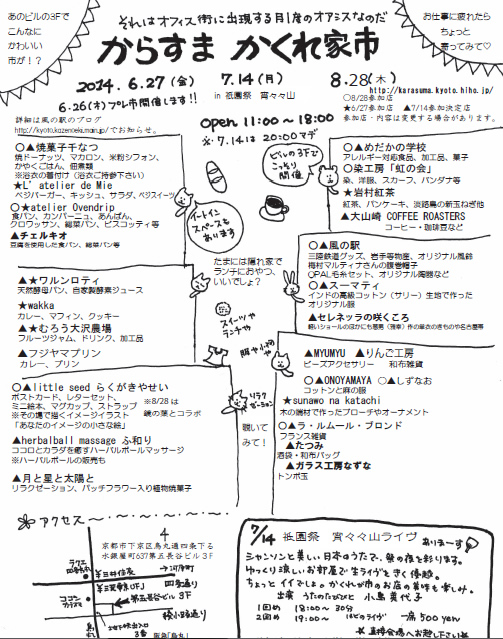 それはオフィス街に出現する月1度のオアシスなのだ
あのビルの3Fで
こんなに
かわいい
市が！？
お仕事に疲れたら
ちょっと
寄ってみて♡
からすま かくれ家市
2014.6.27(金)
7.14(月)
8.28(木)
6.26(木)プレ市開催します!!
in 祇園祭 宵々々山
http://karasuma.kyoto.hiho.jp/
○8/28参加店
★6/27参加店 ▲7/14参加決定店
参加店・内容は変更する場合があります。
詳細は風の駅のブログ
http://kyoto.kazenoeki.main.jp/でお知らせ。
open 11:00~18:00
※7.14は20:00マデ
ビルの3Fで
こっそり
開催
○▲焼菓子千なつ
焼ドーナッツ、マカロン、米粉シフォン、
かやくごはん、佃煮類
※浴衣の着付け（浴衣ご持参下さい）
★L' atelier de Mie
ベジバーガー、キッシュ、サラダ、ベジスイーツ
○★atelier Ovendrip
食パン、カンパーニュ、あんぱん、
クロワッサン、総菜パン、ビスコッティ等
▲チェルキオ
豆腐を使用した食パン、総菜パン等
イートイン
スペースも
あります
○▲めだかの学校
アレルギー対応食品、加工品、菓子
○染工房「虹の会」
染、洋服、スカーフ、バンダナ等
★岩村紅茶
紅茶、パンケーキ、淡路島の新玉ねぎ他
▲大山崎 COFFEE ROASTERS
コーヒー・珈琲豆など
たまには隠れ家で
ランチにおやつ、
いいでしょ？
○▲風の駅
三陸鉄道グッズ、岩手等物産、オリジナル風鈴
梅村マルティナさんの腹巻帽子
OPAL毛糸セット、オリジナル陶器など
○▲スーマティ
インドの高級コットン（サリー）生地で作った
オリジナル服
▲セレネッラの咲くころ
▲★ワルンロティ
天然酵母パン、自家製酵素ジュース
★wakka
カレー、マフィン、クッキー
▲★むろう大沢農場
フルーツジャム、ドリンク、加工品
▲フジヤマプリン
カレー、プリン
スイーツや
ランチや
服や小物や
▲MYUMYU ▲りんご工房
ビーズアクセサリー 和布雑貨
○▲ONOYAMAYA ○▲しずなお
コットンと麻の服
★sunawo na katachi
木の端材で作ったブローチやオーナメント
○▲ラ・ルミール・ブロンド
フランス雑貨
▲たつみ
酒袋・和布バッグ
▲ガラス工房なずな
トンボ玉
○▲★little seed らくがきやせい
ポストカード、レターセット、
ミニ絵本、マグカップ、ストラップ
※その場で描くイメージイラスト
「あなたのイメージの小さな絵」
※8/28は
鏡の葉とコラボ
▲herbalball massage ふ和り
ココロとカラダを癒すハーバルボールマッサージ
※ハーバルボールの販売も
▲月と星と太陽と
リラクゼーション、パッチフラワー入り植物焼菓子
リラク
ゼーション
覗いて
みて！
アクセス
4
京都市下京区烏丸通四条下る
水銀屋町637第五長谷ビル3F
ラクエ
四条烏丸
¥三井住友
→河原町
¥三菱東UFJ
四条通り
ココン
カラスマ
第五長谷ビル3F
綾小路通り
地下鉄出入口
3番
阪急「烏丸」
7/14 祇園祭 宵々々山ライヴ ありまーす
シャンソンと美しい日本のうたで、祭の夜を彩ります。
ゆっくり涼しいお部屋で生ライヴをきく優越。
ちょっとイイでしょ。かくれが市のお店の美味も楽しみ。
出演 うたのたびびと 小島美代子
1回め 18:00~30分
2回め 19:00~
一席 500yen
※直接会場へお越し下さい